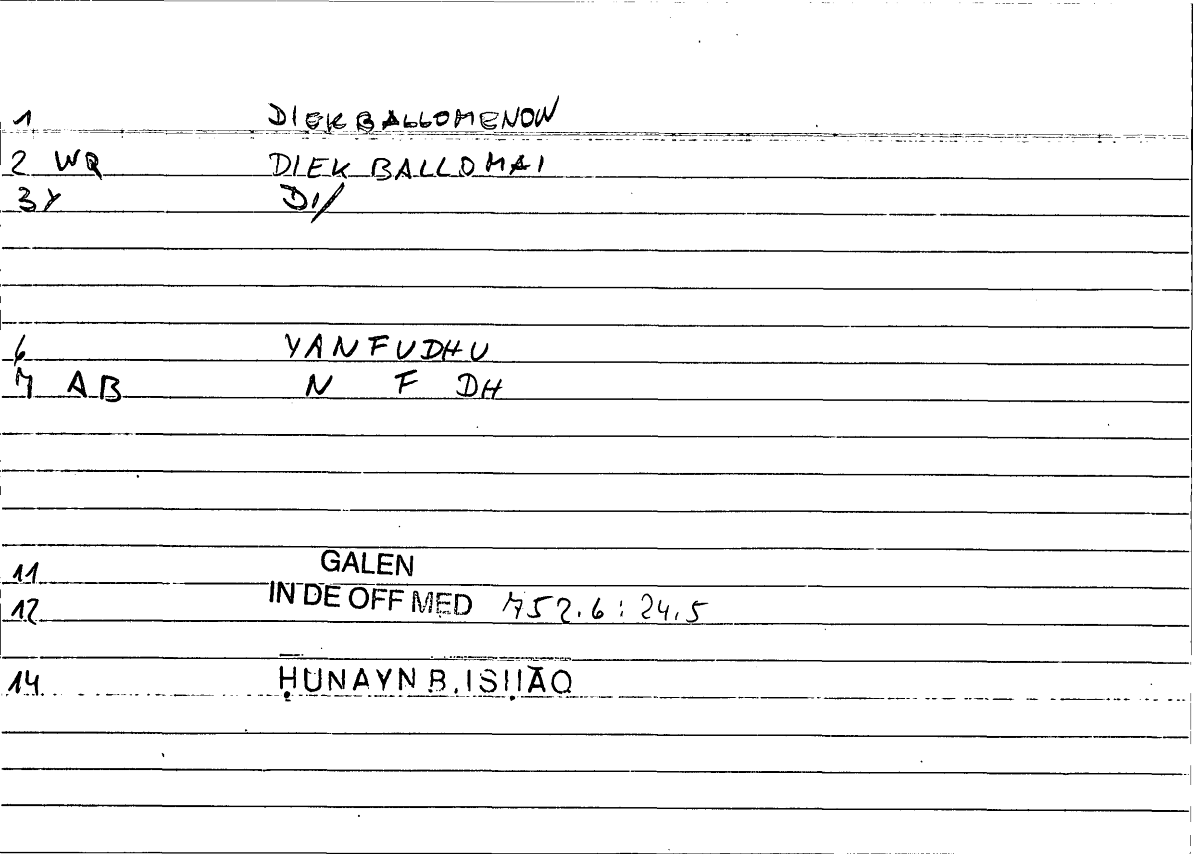 1 DIEKBALLOMENOW
2 WQ DIEK BALLOMAI
3Y DI/
6 YANFUDHU
7 AB N F DH
11 GALEN
12 IN DE OFF MED 752.6 : 24.5
14 ḤUNAYN B. ISḤĀQ